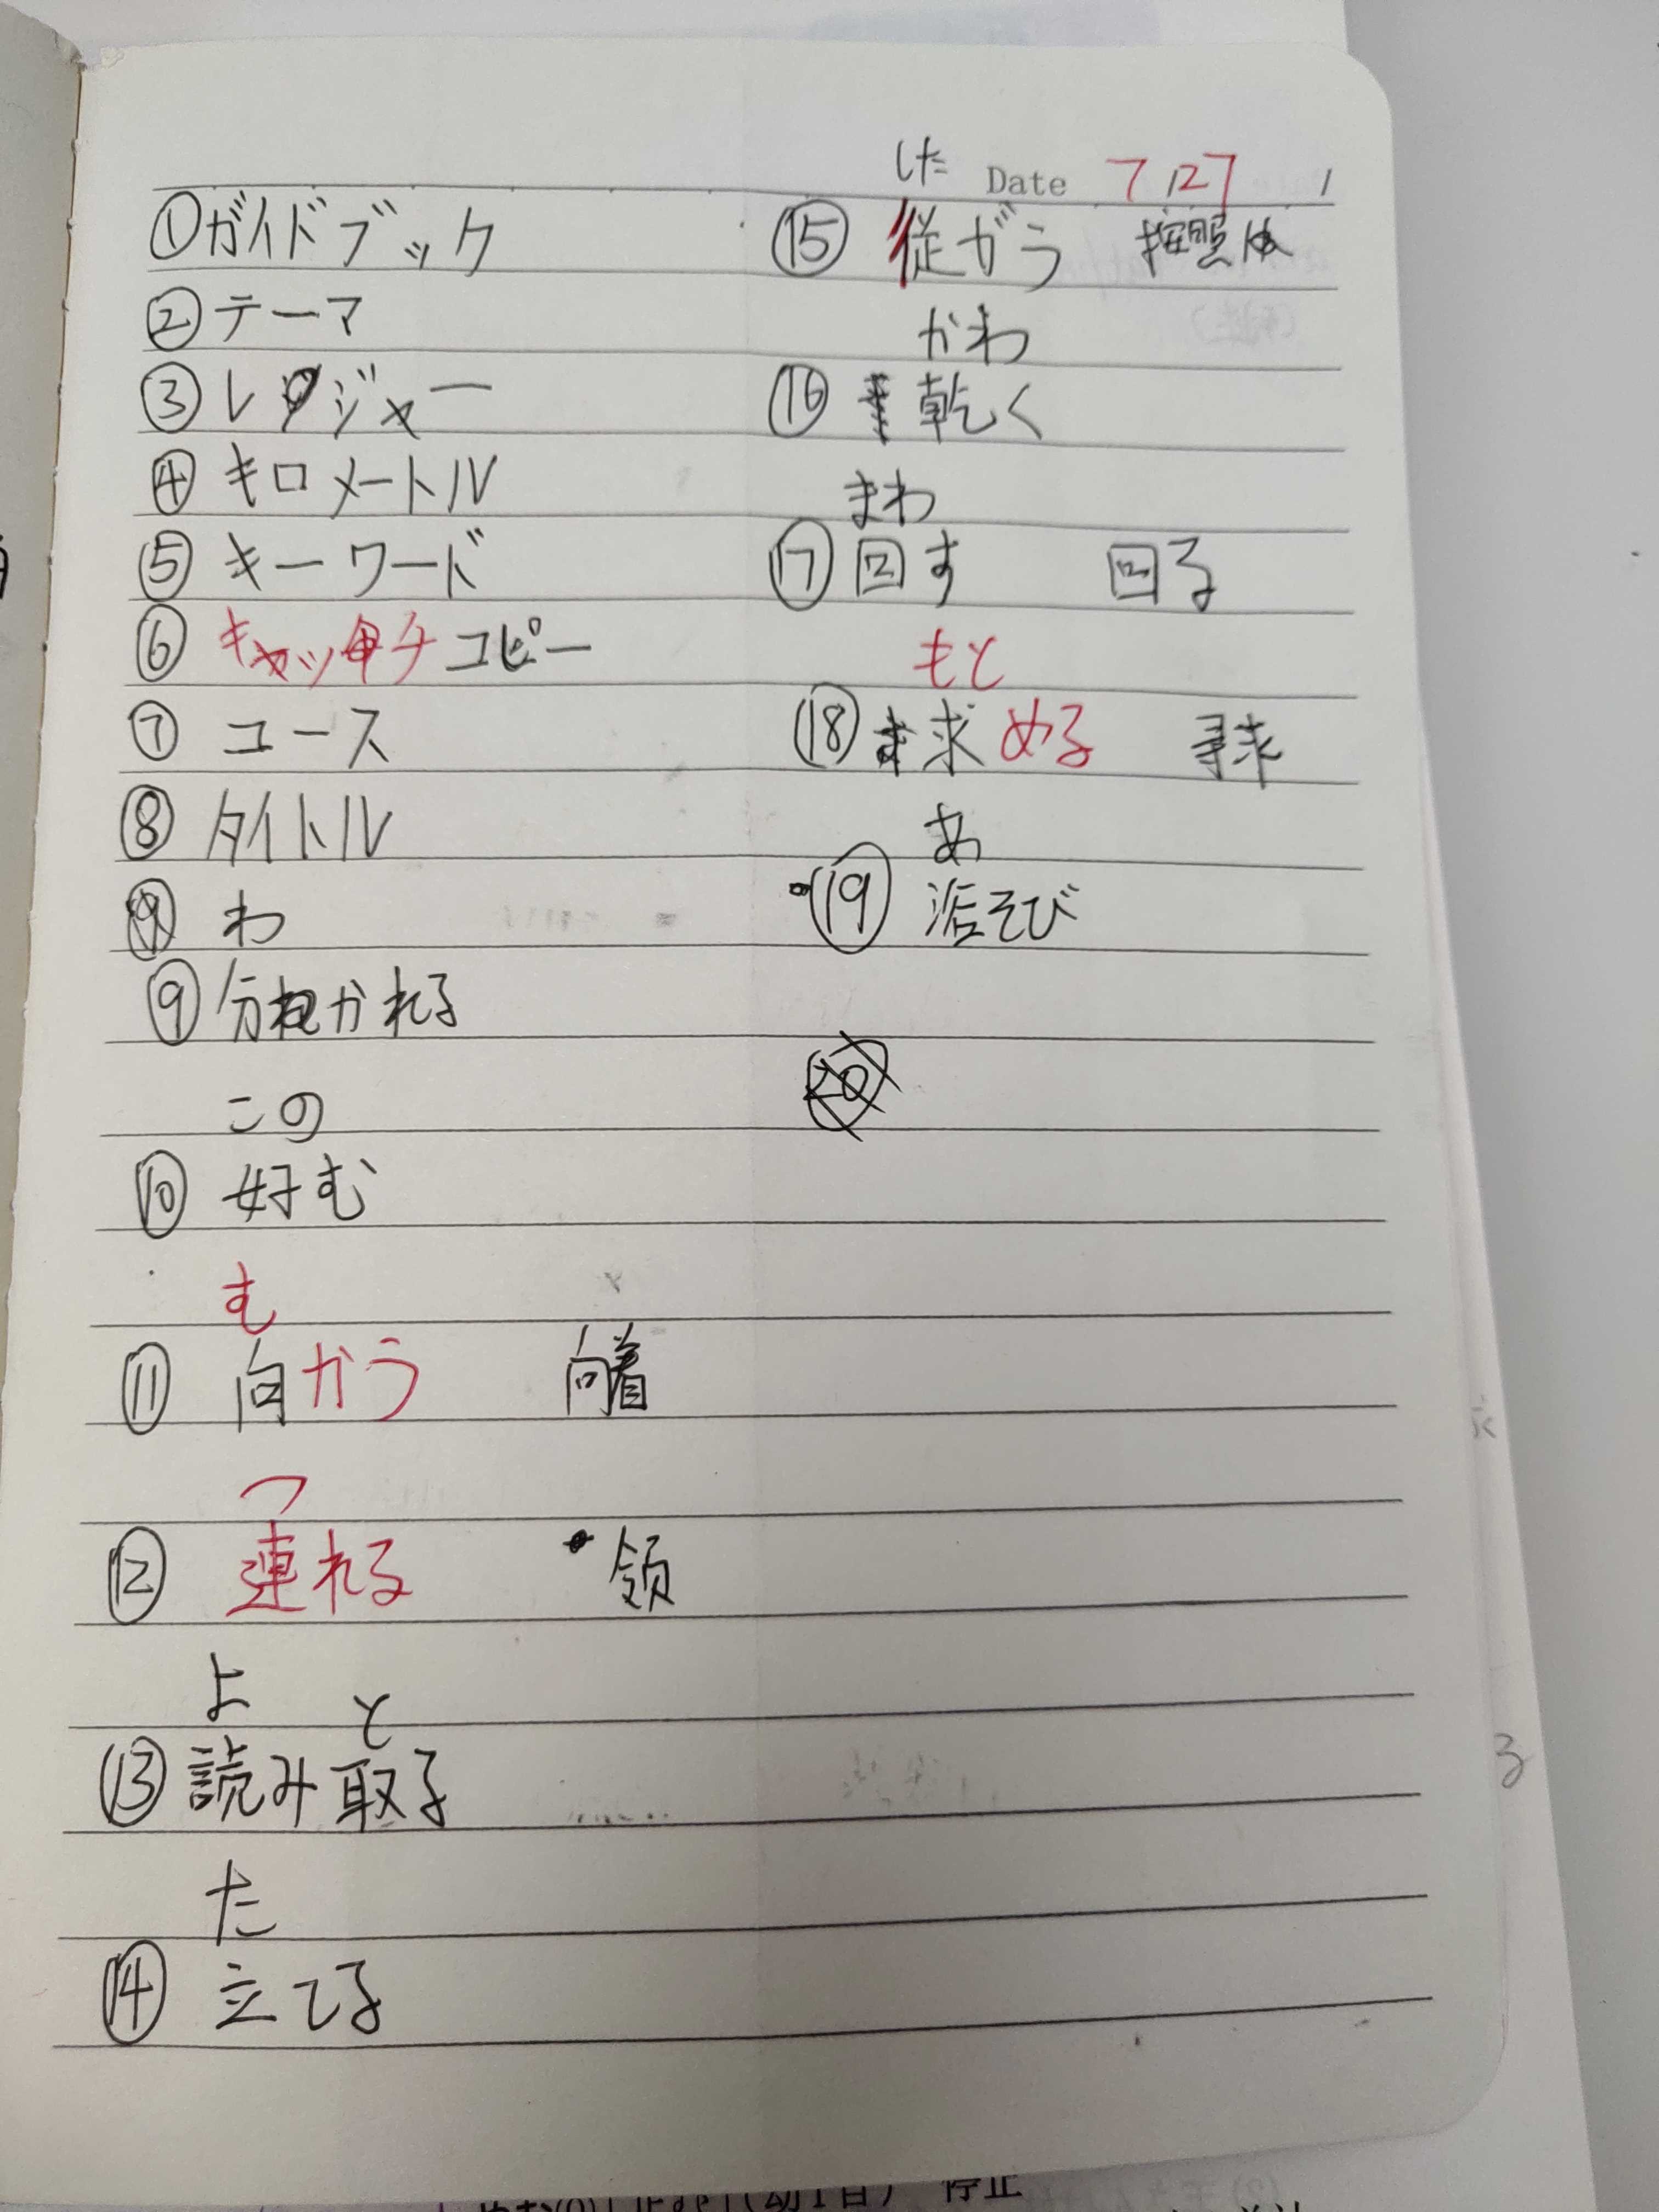 Date 7 27
①ガイドブック
②テーマ
③レジャー
④キロメートル
⑤キーワード
⑥キャッチコピー
⑦コース
⑧タイトル
わ
⑨分かれる
この
⑩好む
む
⑪向かう 向着
つ
⑫連れる 领
よ と
⑬読み取る
た
⑭立てる
した
⑮従がう 按照
かわ
⑯乾く
まわ
⑰回す 回る
もと
⑱求める 寻求
あ
⑲
停止